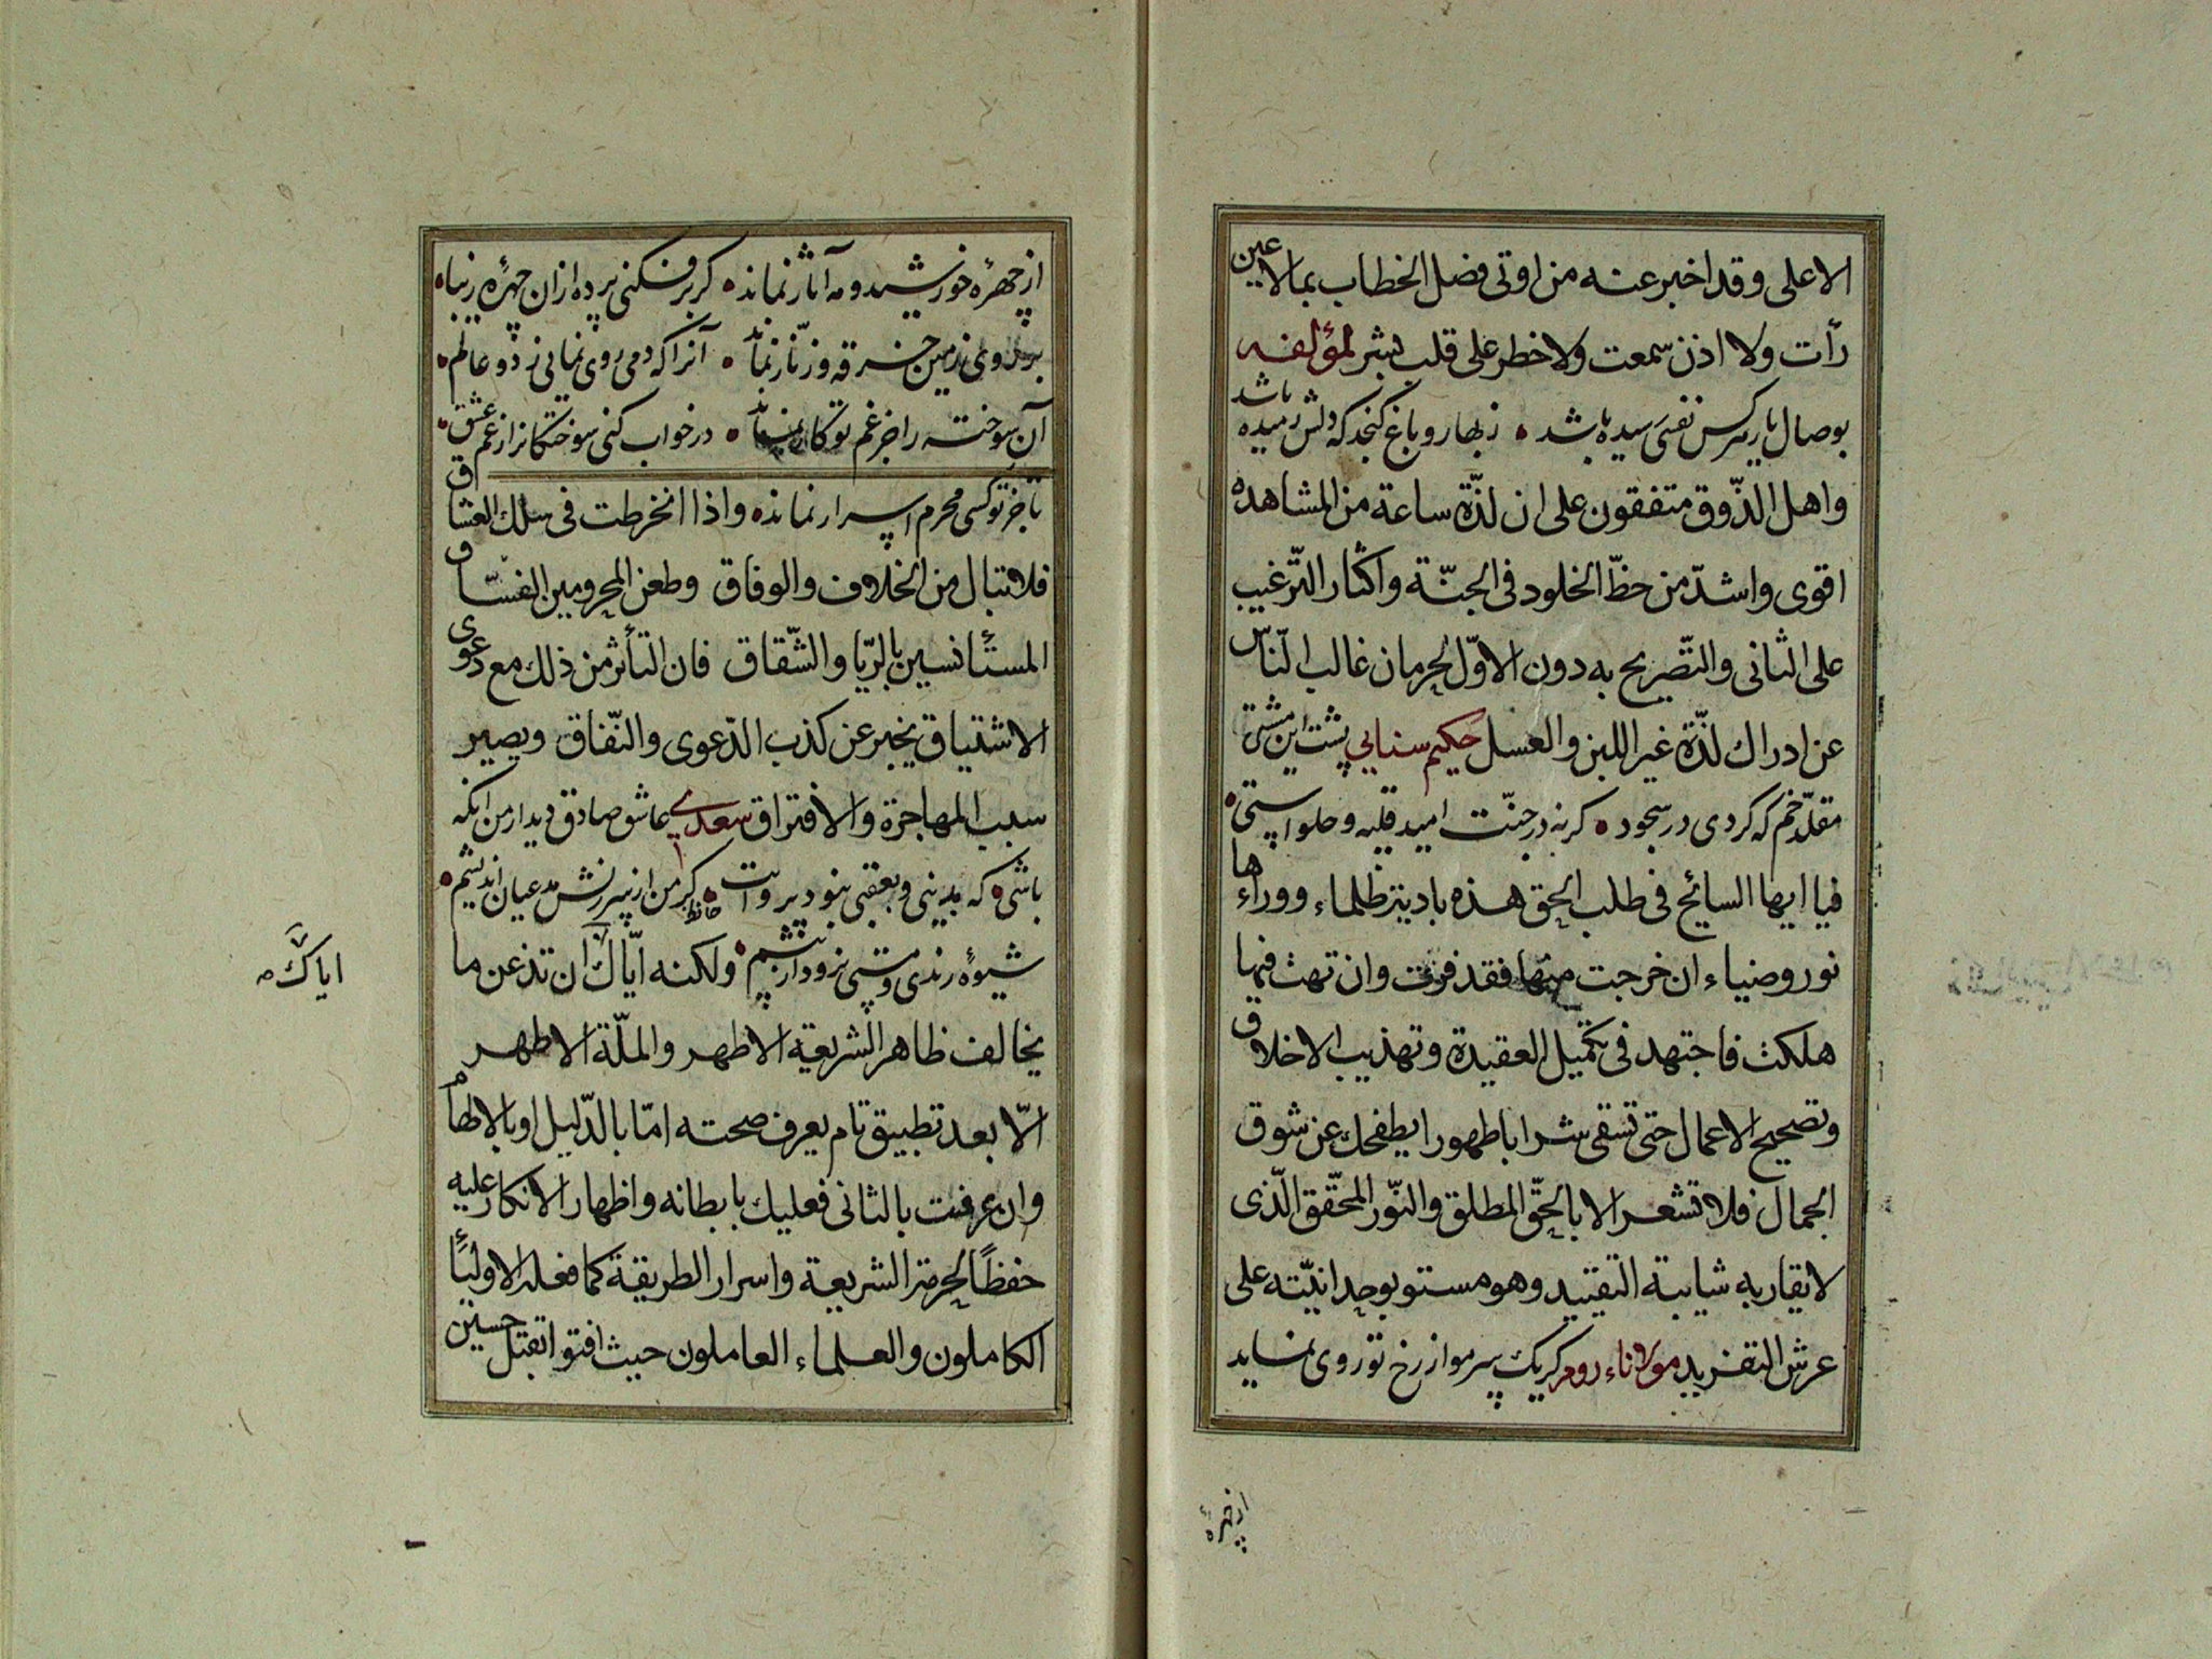 الاعلى وقد اخبر عنه من اوتى فضل الخطاب بما لا عين
رأت ولا اذن سمعت ولا خطر على قلب بشر لمؤلفه
بوصال يار هركس نفسى رسيده باشد ۰ ز بهار و باغ كنجد كه دلش رميده باشد
واهل الذّوق متفقون على ان لذّة ساعة من المشاهده
اقوى واشدّ من حظّ الخلود فى الجنّة واكثار التّرغيب
على الثانى والتّصريح به دون الاوّل لحرمان غالب النّاس
عن ادراك لذّة غير اللبن والعسل حكيم سنايي پشت اين مشتى
مقلّد خم كه كردى در سجود ۰ كرنه در جنّت اميد قليه و حلواستى ۰
فيا ايها السائح فى طلب الحق هذه بادية ظلماء ووراءها
نور وضياء ان خرجت منها فقد فزت وان تهت فيها
هلكت فاجتهد فى تكميل العقيدة وتهذيب الاخلاق
وتصحيح الاعمال حتى تسقى شرابا طهورا يطفحك عن شوق
الجمال فلا تشعر الا بالحقّ المطلق والنّور المحقّق الّذى
لا يقاربه شايبة التقييد وهو مستو بوحدانيّته على
عرش التفريد مولاناء روم كر يك سر مو از رخ تو روى نمايد
از چهرهٔ
از چهرهٔ خورشيد و مه آثار نماند ۰ كر برفكنى پرده از ان چهرهٔ زيبا ۰
بر روى زمين خرقه و زنّار نماند ۰ آنرا كه دمى روى نمايى ز دو عالم ۰
آن سوخته را جز غم تو كار نماند ۰ در خواب كنى سوختكانرا ز غم عشق ۰
تا جز تو كسى محرم اسرار نماند ۰ واذا انخرطت فى سلك العشاق
فلا تبال من الخلاف والوفاق وطعن المحرومين الفسّاق
المستأنسين بالرّيا والشّقاق فان التأثر من ذلك مع دعوى
الاشتياق يخبر عن كذب الدّعوى والنّفاق ويصير
سبب المهاجرة والافتراق سعدي عاشق صادق ديدار من انكه
باشى ۰ كه بدنيى و بعقبى نبود پروات ۰ حافظ كر من از سرزنش مدعيان انديشم ۰
شيوهٔ رندى و مستى نرود از پيشم ۰ ولكنه ايّاك ان تذعن ما
اياك صح
يخالف ظاهر الشريعة الاطهر والملّة الاطهر
الّا بعد تطبيق تام يعرف صحته امّا بالدّليل او بالالهام
وان عرفت بالثانى فعليك بابطانه واظهار الانكار عليه
حفظًا لحرمة الشريعة واسرار الطريقة كما فعله الاولياءُ
الكاملون والعلماء العاملون حيث افتوا بقتل حسين